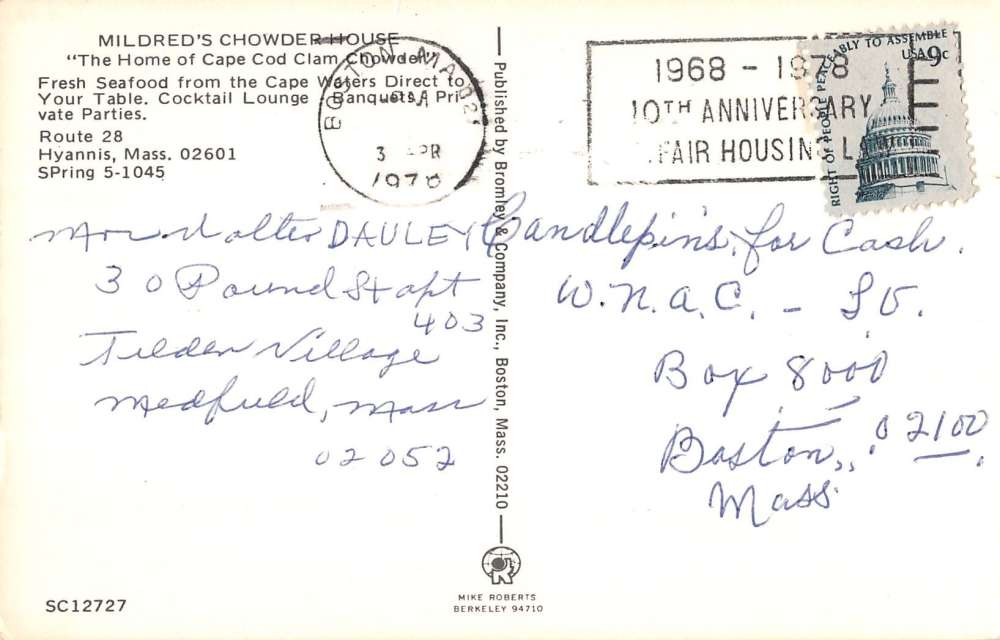 MILDRED'S CHOWDER HOUSE
"The Home of Cape Cod Clam Chowder"
Fresh Seafood from the Cape Waters Direct to
Your Table. Cocktail Lounge Banquets, Pri-
vate Parties.
Route 28
Hyannis, Mass. 02601
SPring 5-1045
BOSTON MA 021
3 APR
1978
1968 - 1978
10TH ANNIVERSARY
FAIR HOUSING LAW
RIGHT OF PEOPLE PEACEABLY TO ASSEMBLE
USA 9c
Walter DAULEY
30 Pound St apt
403
Tilden Village
Medfield, Mass
02052
Candlepins for Cash.
W.N.A.C. -
Box 8000
Boston, 02100
Mass.
Published by Bromley & Company, Inc., Boston, Mass. 02210
MIKE ROBERTS
BERKELEY 94710
SC12727